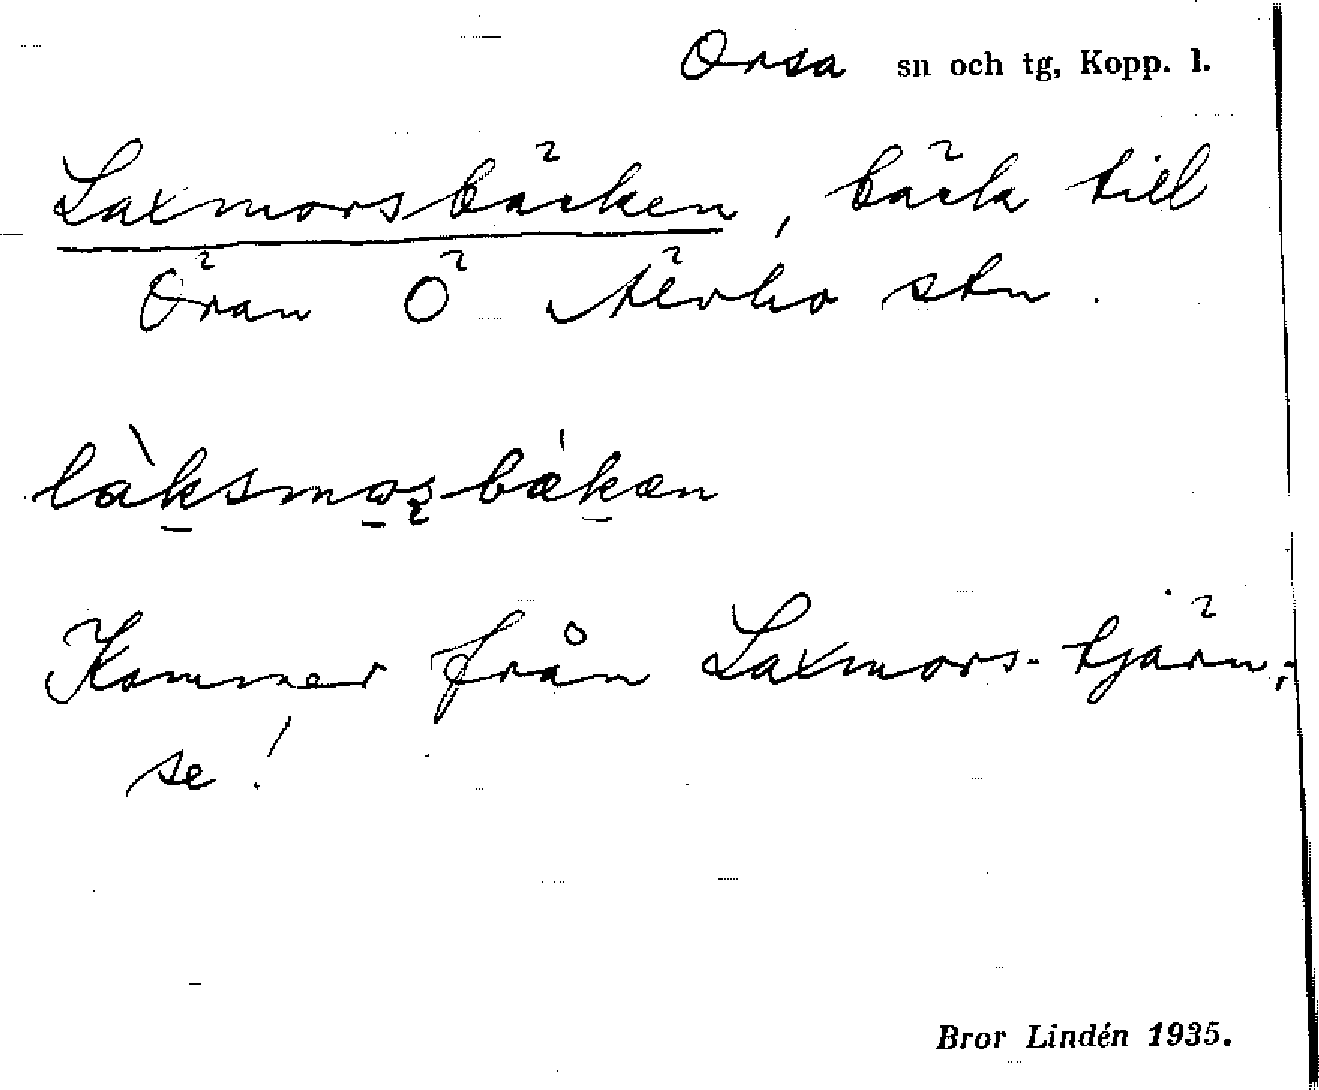 Orsa sn och tg, Kopp. l.
Laxmorsbäcken, bäck till
Öran Ö Älvho stn.
Kommer från Laxmors-tjärn,
se!
Bror Lindén 1935.